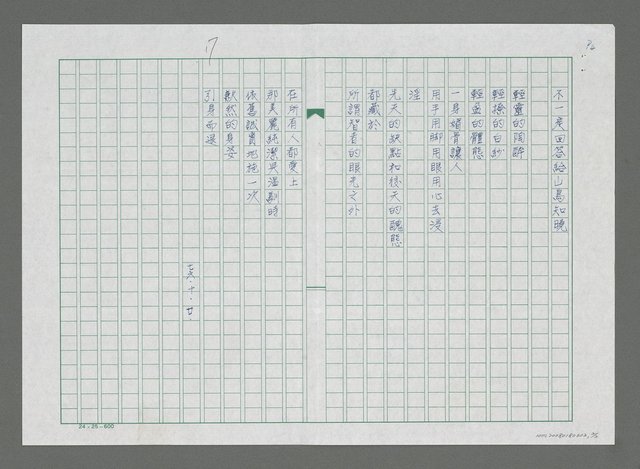 不一定回答給山鳥知曉
輕靈的陶醉
輕撩的白紗
輕盈的體態
一身媚骨讓人
用手用脚用眼用心去浸
淫
先天的缺點和後天的醜態
都藏於
所謂智者的眼光之外
17
在所有人都愛上
那美麗純潔與溫馴時
依舊誠實地施一次
默然的身姿
引身而退
七六、十、廿、
24×25=600